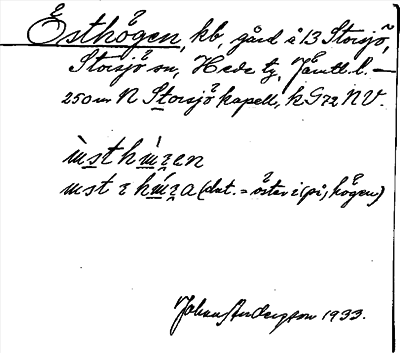 Östhögen, kb, gård å 13 Storsjö,
Storsjö sn, Hede tg, Jämtl. l. —
250 m N Storsjö kapell, k G 72 NV.
ùst hǜʒen
ust ɪ hǘʒa (dat. = öster i (på, högen)
Johan Anderzson 1933.